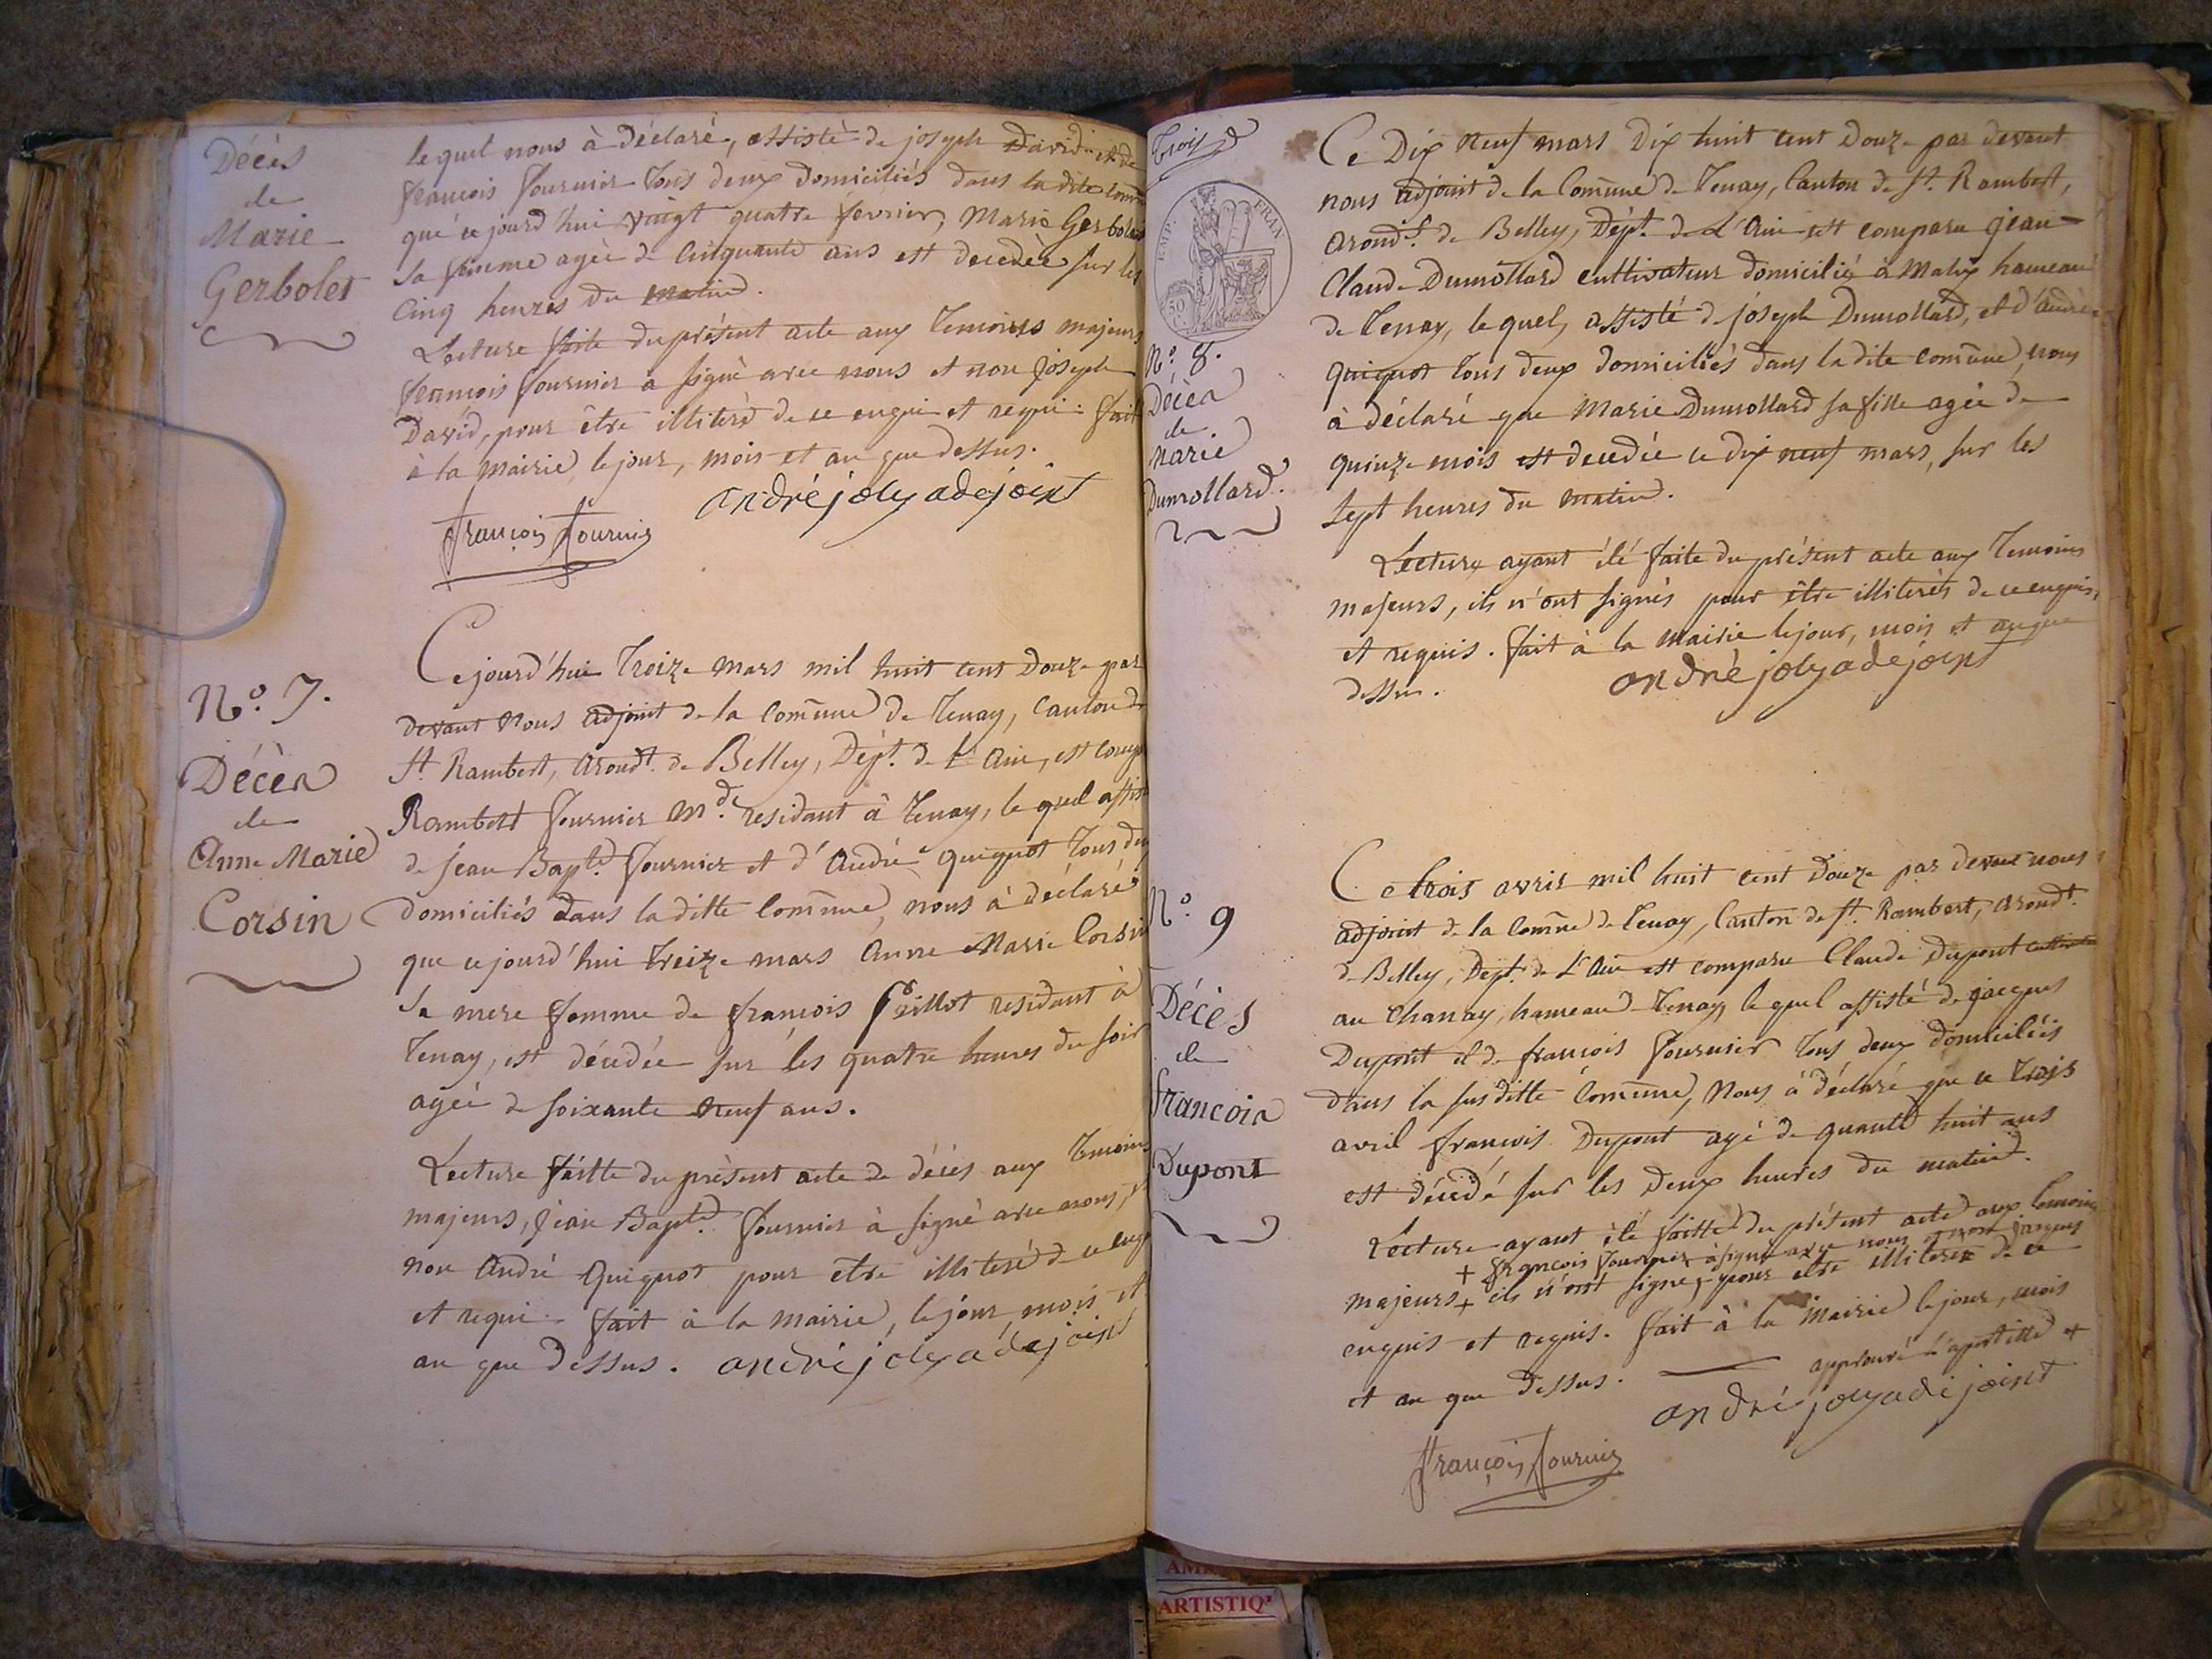 Décès
de
Marie
Gerbolet
le quel nous à déclaré, assisté de joseph David et de
francois fournier tous deux domiciliés dans la dite
que ce jourd'hui vingt quatre fevrier, Marie Gerbolet
sa femme agée de cinquante ans est decedèe sur les
cinq heures du matin.
Lecture faite du présent acte aux temoins majeurs
francois fournier a signé avec nous et non joseph
David, pour être illiteré de ce enqui et requi. fait
à la mairie, le jour, mois et an que dessus.
andré joly adejoint
françois fournier
N° 7.
Décès
de
Anne Marie
Corsin
Ce jourd'hui treize mars mil huit cent douze par
devant nous adjoint de la comune de Tenay, canton de
St. Rambert, arondt. de Belley, Dépt. de L'Ain, est
Rambert fournier md. residant à Tenay, le quel
de jean Bapte. fournier et d'André quiquot tous
domiciliés dans la ditte comune, nous à déclaré
que ce jourd'hui treize mars Anne Marie Corsin
sa mere femme de francois residant à
Tenay, est décédée sur les quatre heures du soir
agée de soixante neuf ans.
Lecture faitte du présent acte de décès aux temoins
majeurs, jean Bapte. fournier à signé avec nous, et
non André quiquot pour etre illiteré de ce
et requi. fait à la mairie, le jour, mois et
an que dessus. andré joly adejoint
trois
EMP. FRAN
50 c.
N° 8.
Décès
de
Marie
Dumollard.
Ce Dix neuf mars Dix huit cent Douze par devant
nous adjoint de la Comune de Tenay, Canton de St. Rambert,
arondt. de Belley, Dépt. de L'Ain est comparu jean
Claude Dumollard cultivateur domicilié à Malix hameau
de Tenay, le quel, assisté de joseph Dumollard, et d'André
quiquot tous deux domiciliés dans la dite comune, nous
à déclaré que Marie Dumollard sa fille agée de
quinze mois est decedée ce dix neuf mars, sur les
sept heures du matin.
Lecture ayant été faite du présent acte aux temoins
majeurs, ils n'ont signés pour être illiterés de ce enquis,
et requis. fait à la mairie le jour, mois et an que
dessus.
andré joly adejoint
N° 9
Décès
de
francois
Dupont
Ce trois avril mil huit cent douze par devant nous
adjoint de la Comune de Tenay, Canton de St. Rambert, arondt.
de Belley, Dept. de L'Ain est comparu Claude Dupont
au Chanay, hameau Tenay, le quel assisté de jacques
Dupont et de francois fournier tous deux domiciliés
dans la susditte comune, nous à déclaré que ce trois
avril francois Dupont agé de huit ans
est décédé sur les deux heures du matin.
Lecture ayant été faitte du présent acte aux temoins
+ françois fournier à signé avec nous et non jacques
majeurs + ils n'ont signé, pour etre illiterés de ce
enquis et requis. fait à la Mairie le jour, mois
et an que dessus.
approuvé l'apostille +
andré joly adejoint
françois fournier
ARTISTIQ